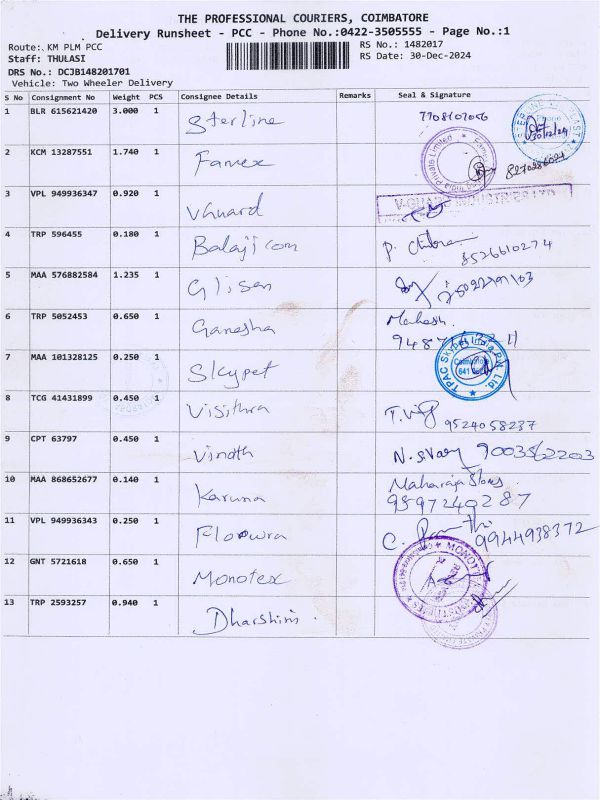 THE PROFESSIONAL COURIERS, COIMBATORE
Delivery Runsheet - PCC - Phone No.:0422-3505555 - Page No.:1
Route:. KM PLM PCC
RS No.: 1482017
Staff: THULASI
RS Date: 30-Dec-2024
DRS No.: DCJB148201701
Vehicle: Two Wheeler Delivery
S No Consignment No Weight PCS Consignee Details Remarks Seal & Signature
1 BLR 615621420 3.000 1 Sterline 7708107056
30/12/24
2 KCM 13287551 1.740 1 Famex
Private Limited
3 VPL 949936347 0.920 1 Vguard
4 TRP 596455 0.180 1 Balaji com P.
8526610274
5 MAA 576882584 1.235 1 Glisen
6 TRP 5052453 0.650 1 Ganesha Mahesh
7 MAA 101328125 0.250 1 Skypet
TPAC Skypet India Pvt. Ltd.
8 TCG 41431899 0.450 1 Visithra 9524058237
9 CPT 63797 0.450 1 Vinoth 7003562203
10 MAA 868652677 0.140 1 Karuna Maharaja Stores
9597240287
11 VPL 949936343 0.250 1 C. 9944938372
12 GNT 5721618 0.650 1 Monotex
13 TRP 2593257 0.940 1 Dharshini.